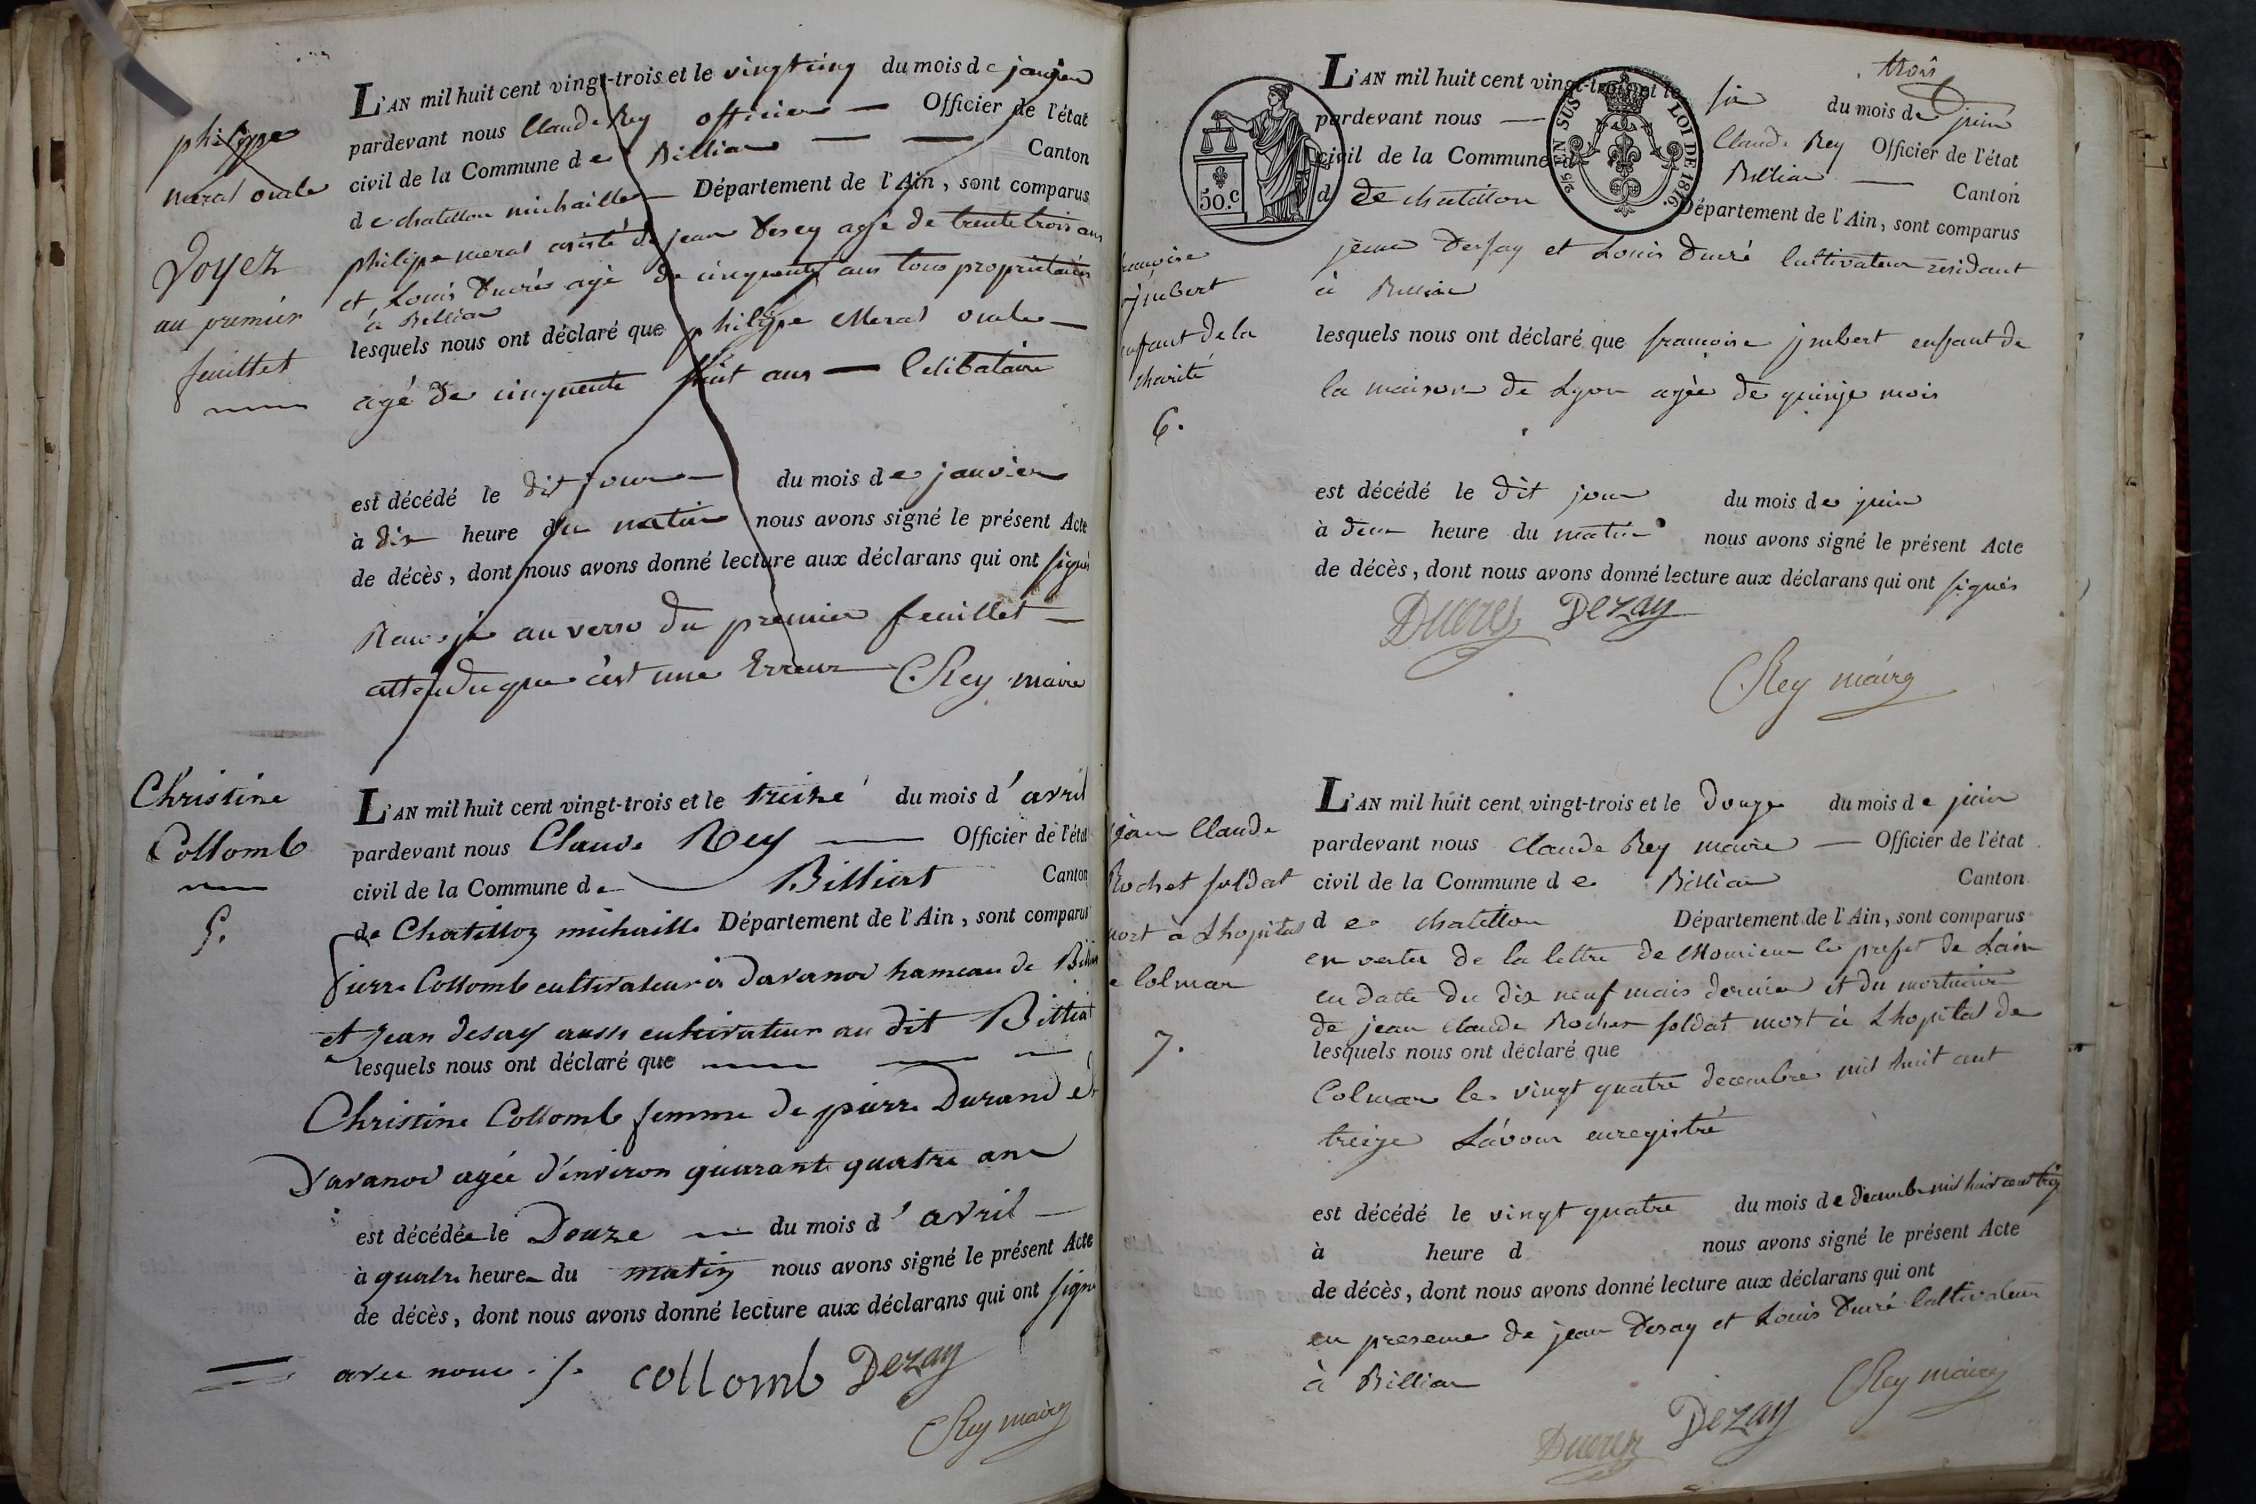 philippe
meral oncle
Voyez
au premier
feuillet
L'AN mil huit cent vingt-trois et le vingt cinq du mois de janvier
pardevant nous Claude Rey officier — Officier de l'état
civil de la Commune de Billiat — — Canton
de chatillon michaille — Département de l'Ain, sont comparus
philipe meral assisté de jean Desey agé de trente trois ans
et Louis Ducré agé de cinquente ans tous propriétaires
à Billiat
lesquels nous ont déclaré que philippe Meral oncle —
agé de cinquente huit ans — Celibataire
est décédé le dit jour — du mois de janvier
à dix heure du matin nous avons signé le présent Acte
de décès, dont nous avons donné lecture aux déclarans qui ont signés
au verso du premier feuillet —
attendu que c'est une Erreur — CRey maire
Christine
Collomb
5.
L'AN mil huit cent vingt-trois et le treize du mois d'avril
pardevant nous Claude Rey — Officier de l'état
civil de la Commune de — Billiat Canton
de Chatillon michaille Département de l'Ain, sont comparus
pierre Collomb cultivateur à Davanod hameau de Billiat
et Jean desay aussi cultivateur au dit Billiat
lesquels nous ont déclaré que — — —
Christine Collomb femme de pierre Durand de
Davanod agée d'environ quarante quatre ans
est décédée le Douze — du mois d'avril —
à quatre heure du matin nous avons signé le présent Acte
de décès, dont nous avons donné lecture aux déclarans qui ont signé
avec nous ./.
collomb Dezay
CRey maire
trois
50.c
EN SUS
LOI DE 1816.
françoise
jmbert
enfant de la
charité
6.
L'AN mil huit cent vingt-trois et le six du mois de juin
pardevant nous — Claude Rey Officier de l'état
civil de la Commune d Billiat — Canton
d de chatillon Département de l'Ain, sont comparus
jean Dessay et Louis Ducré Cultivateur residant
à Billiat
lesquels nous ont déclaré que françoise jmbert enfant de
la maison de Lyon agée de quinze mois
est décédé le dit jour du mois de juin
à deux heure du matin nous avons signé le présent Acte
de décès, dont nous avons donné lecture aux déclarans qui ont signés
Ducrey Dezay
CRey maire
jean Claude
Rochet soldat
mort à Lhopital
de Colmar
7.
L'AN mil huit cent vingt-trois et le douze du mois de juin
pardevant nous Claude Rey maire — Officier de l'état
civil de la Commune de Billiat Canton
de chatillon Département de l'Ain, sont comparus
en vertu de la lettre de Monsieur le prefet de Lain
en datte du dix neuf mais dernier et du mortuaire
de jean Claude Rochet soldat mort à Lhopital de
lesquels nous ont déclaré que
Colmar le vingt quatre decembre mil huit cent
treize Lavons enregistré
est décédé le vingt quatre du mois de decembre mil huit cent treize
à heure d nous avons signé le présent Acte
de décès, dont nous avons donné lecture aux déclarans qui ont
en presence de jean Desay et Louis Ducré Cultivateur
à Billiat
Ducrey Dezay CRey maire